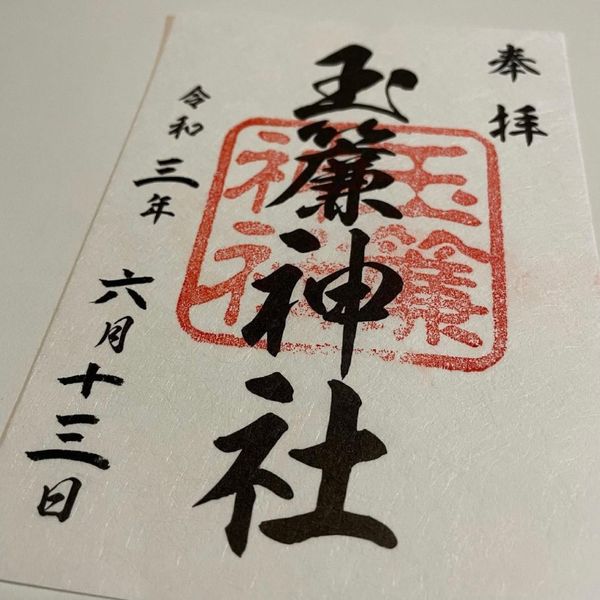 奉拝
玉簾神社
玉簾
神社
令和三年六月十三日